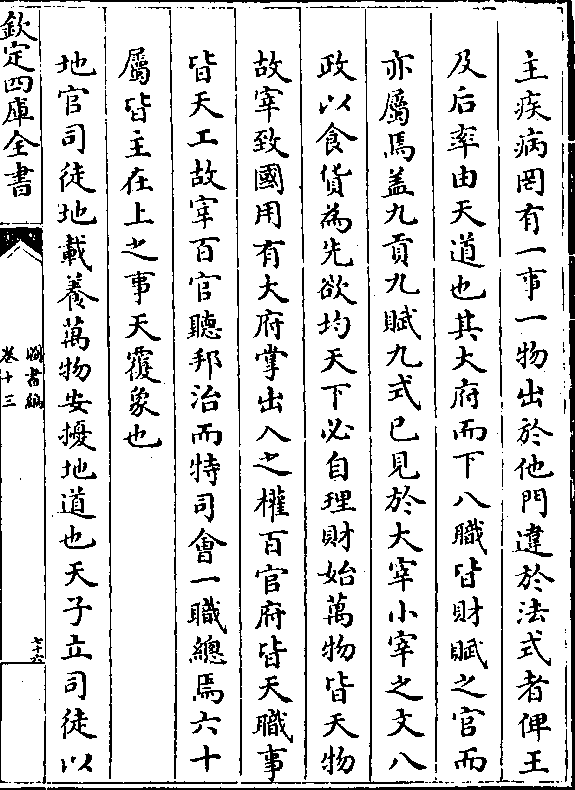 主疾病罔有一事一物出於他門違於法式者俾王
及后率由天道也其大府而下八職皆財賦之官而
亦屬焉蓋九貢九賦九式已見於大宰小宰之文八
政以食貨為先欲均天下必自理財始萬物皆天物
故宰致國用有大府掌出入之權百官府皆天職事
皆天工故宰百官聽邦治而特司會一職總焉六十
屬皆主在上之事天覆象也
地官司徒地載養萬物安擾地道也天子立司徒以
欽定四庫全書
圖書編
卷十三
七十六